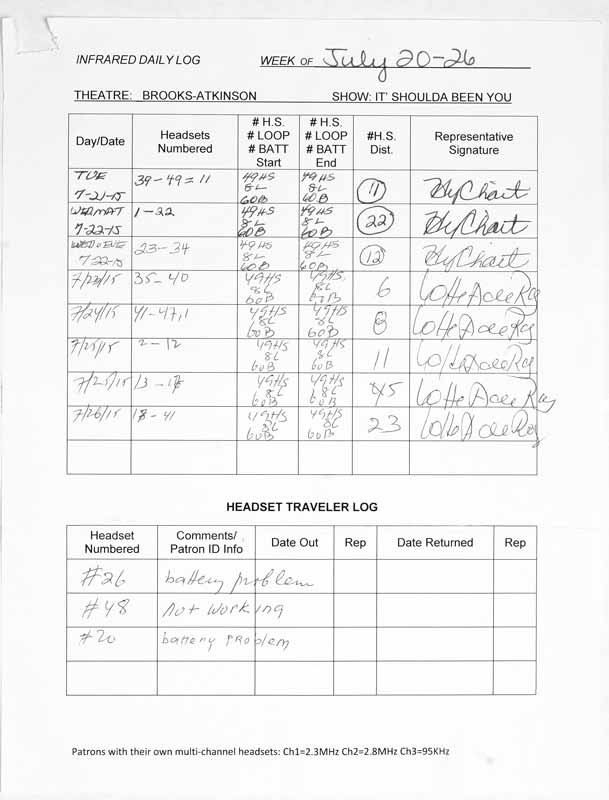 INFRARED DAILY LOG WEEK OF July 20-26
THEATRE: BROOKS-ATKINSON SHOW: IT' SHOULDA BEEN YOU
Day/Date Headsets Numbered # H.S. # LOOP # BATT Start # H.S. # LOOP # BATT End #H.S. Dist. Representative Signature
TUE 7-21-15 39-49=11 49HS 8L 60B 49HS 8L 60B 11
WED MAT 7-22-15 1-22 49HS 8L 60B 49HS 8L 60B 22
WED EVE 7-22-15 23-34 49HS 8L 60B 49HS 8L 60B 12
7/23/15 35-40 49HS 8L 60B 49HS 8L 6
7/24/15 41-47,1 49HS 8L 60B 49HS 8L 60B 8
7/25/15 2-12 49HS 8L 60B 49HS 8L 60B 11
7/25/15 13-18 49HS 8L 60B 49HS 8L 60B
7/26/15 18-41 49HS 8L 60B 49HS 8L 60B 23
HEADSET TRAVELER LOG
Headset Numbered Comments/ Patron ID Info Date Out Rep Date Returned Rep
#26 battery problem
#48 not working
#20 battery problem
Patrons with their own multi-channel headsets: Ch1=2.3MHz Ch2=2.8MHz Ch3=95KHz